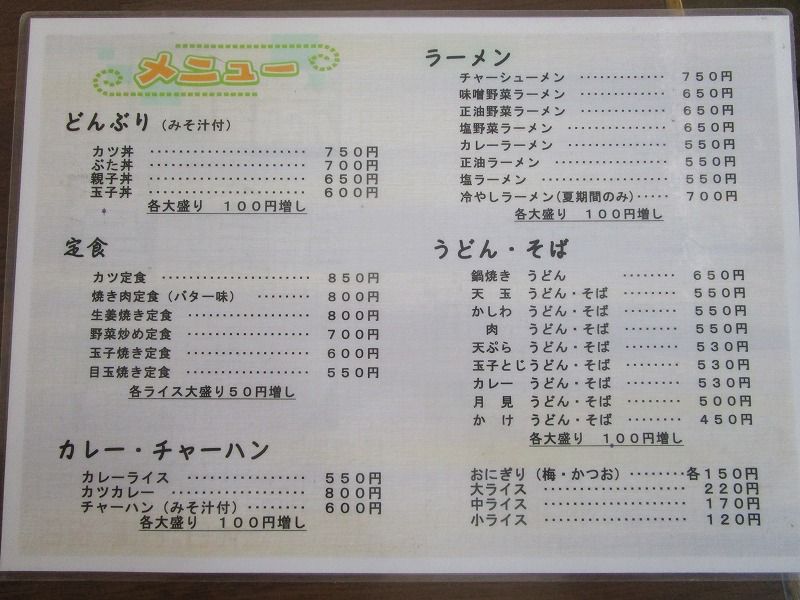 メニュー
どんぶり（みそ汁付）
カツ丼 ······················ ７５０円
ぶた丼 ······················ ７００円
親子丼 ······················ ６５０円
玉子丼 ······················ ６００円
各大盛り　１００円増し
定食
カツ定食 ···················· ８５０円
焼き肉定食（バター味） ········ ８００円
生姜焼き定食 ················· ８００円
野菜炒め定食 ················· ７００円
玉子焼き定食 ················· ６００円
目玉焼き定食 ················· ５５０円
各ライス大盛り５０円増し
カレー・チャーハン
カレーライス ················· ５５０円
カツカレー ··················· ８００円
チャーハン（みそ汁付） ········ ６００円
各大盛り　１００円増し
ラーメン
チャーシューメン ············· ７５０円
味噌野菜ラーメン ············· ６５０円
正油野菜ラーメン ············· ６５０円
塩野菜ラーメン ··············· ６５０円
カレーラーメン ··············· ５５０円
正油ラーメン ················· ５５０円
塩ラーメン ··················· ５５０円
冷やしラーメン(夏期間のみ)····· ７００円
各大盛り　１００円増し
うどん・そば
鍋焼き　うどん ········· ６５０円
天　玉　うどん・そば ········· ５５０円
かしわ　うどん・そば ········· ５５０円
肉　うどん・そば ········· ５５０円
天ぷら　うどん・そば ········· ５３０円
玉子とじうどん・そば ········· ５３０円
カレー　うどん・そば ········· ５３０円
月　見　うどん・そば ········· ５００円
か　け　うどん・そば ········· ４５０円
各大盛り　１００円増し
おにぎり（梅・かつお）········各１５０円
大ライス ···················· ２２０円
中ライス ···················· １７０円
小ライス ···················· １２０円